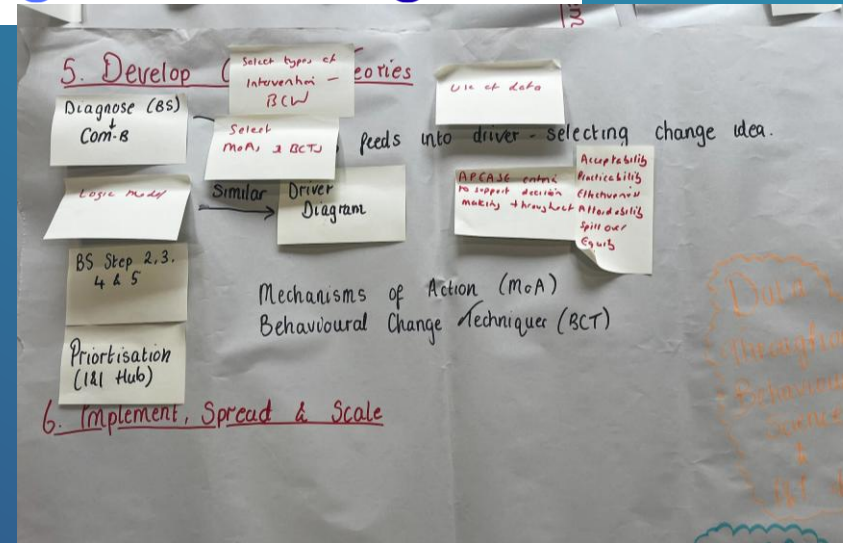 5. Develop
eories
Select types of
Intervention -
BCW
Use of data
Diagnose (BS)
↓
Com-B
Select
MoAs & BCTs
feeds into driver - selecting change idea.
Logic Model
Similar
Driver
Diagram
APEASE criteria
to support decision
making throughout
Acceptability
Practicability
Effectiveness
Affordability
Spill over
Equity
BS Step 2,3,
4 & 5
Mechanisms of Action (MoA)
Behavioural Change Techniques (BCT)
Priortisation
(I&I Hub)
6. Implement, Spread & Scale
Data
Through
Behaviour
Science
&